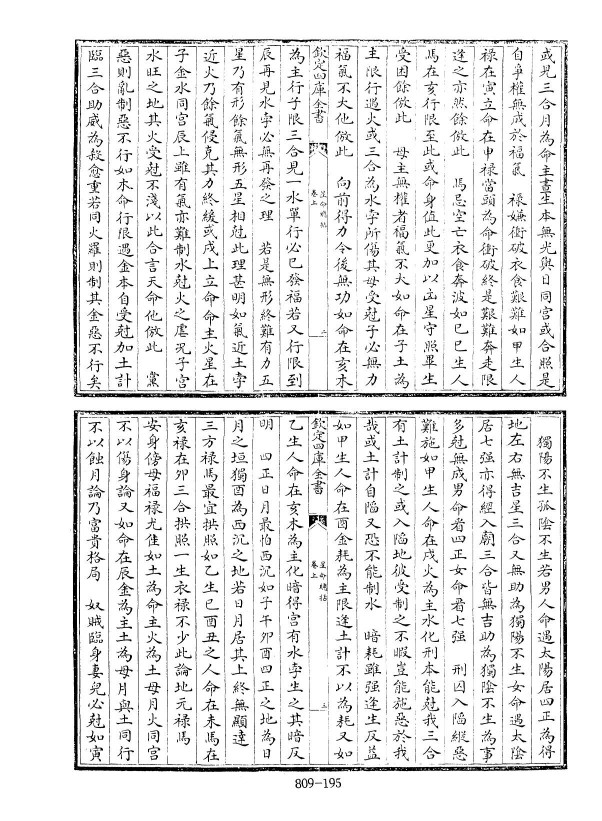 或見三合月為命主晝生本無光與日同宮或合照是
自爭權無成於福氣　祿嫌衝破衣食艱難如甲生人
祿在寅立命在申祿當頭為命衝破終是艱難奔走限
逢之亦然餘倣此　馬忌空亡衣食奔波如巳巳生人
馬在亥行限至此或命身值此更加以凶星守照畢生
受困餘倣此　母主無權者福氣不大如命在子土為
主限行遇火或三合為水孛所傷其母受尅子必無力
福氣不大他倣此　向前得力今後無功如命在亥木
欽定四庫全書
星命總括
卷上
二
為主行子限三合見一水單行必已發福若又行限到
辰再見水孛必無再發之理　若是無形終難有力五
星乃有形餘氣無形五星相尅此理甚明如氣近土孛
近火乃餘氣侵尅其力終緩或戌上立命命主火星在
子金水同宮辰上雖有氣亦難制水尅火之虐況子宮
水旺之地其火受尅不淺以此合言天命他倣此　黨
惡則亂制惡不行如木命行限遇金本自受尅加土計
臨三合助威為殺愈重若同火羅則制其金惡不行矣
獨陽不生孤陰不生若男人命遇太陽居四正為得
地左右無吉星三合又無助為獨陽不生女命遇太陰
居七強亦得經入廟三合皆無吉助為獨陰不生為事
多尅無成男命看四正女命看七強　刑囚入陷縱惡
難施如甲生人命在戌火為主水化刑本能尅我三合
有土計制之或入陷地彼受制之不暇豈能施惡於我
哉或土計自陷又恐不能制水　暗耗雖強逢生反益
如甲生人命在酉金耗為主限逢土計不以為耗又如
欽定四庫全書
星命總括
卷上
三
乙生人命在亥木為主化暗得宮有水孛生之其暗反
明　四正日月最怕西沉如子午卯酉四正之地為日
月之垣獨酉為西沉之地若日月居其上終無顯達
三方祿馬最宜拱照如乙生巳酉丑之人命在未馬在
亥祿在卯三合拱照一生衣祿不少此論地元祿馬
安身傍母福祿尤佳如土為命主火為土母月火同宮
不以傷身論又如命在辰金為主土為母月與土同行
不以蝕月論乃富貴格局　奴賊臨身妻兒必尅如寅
809-195